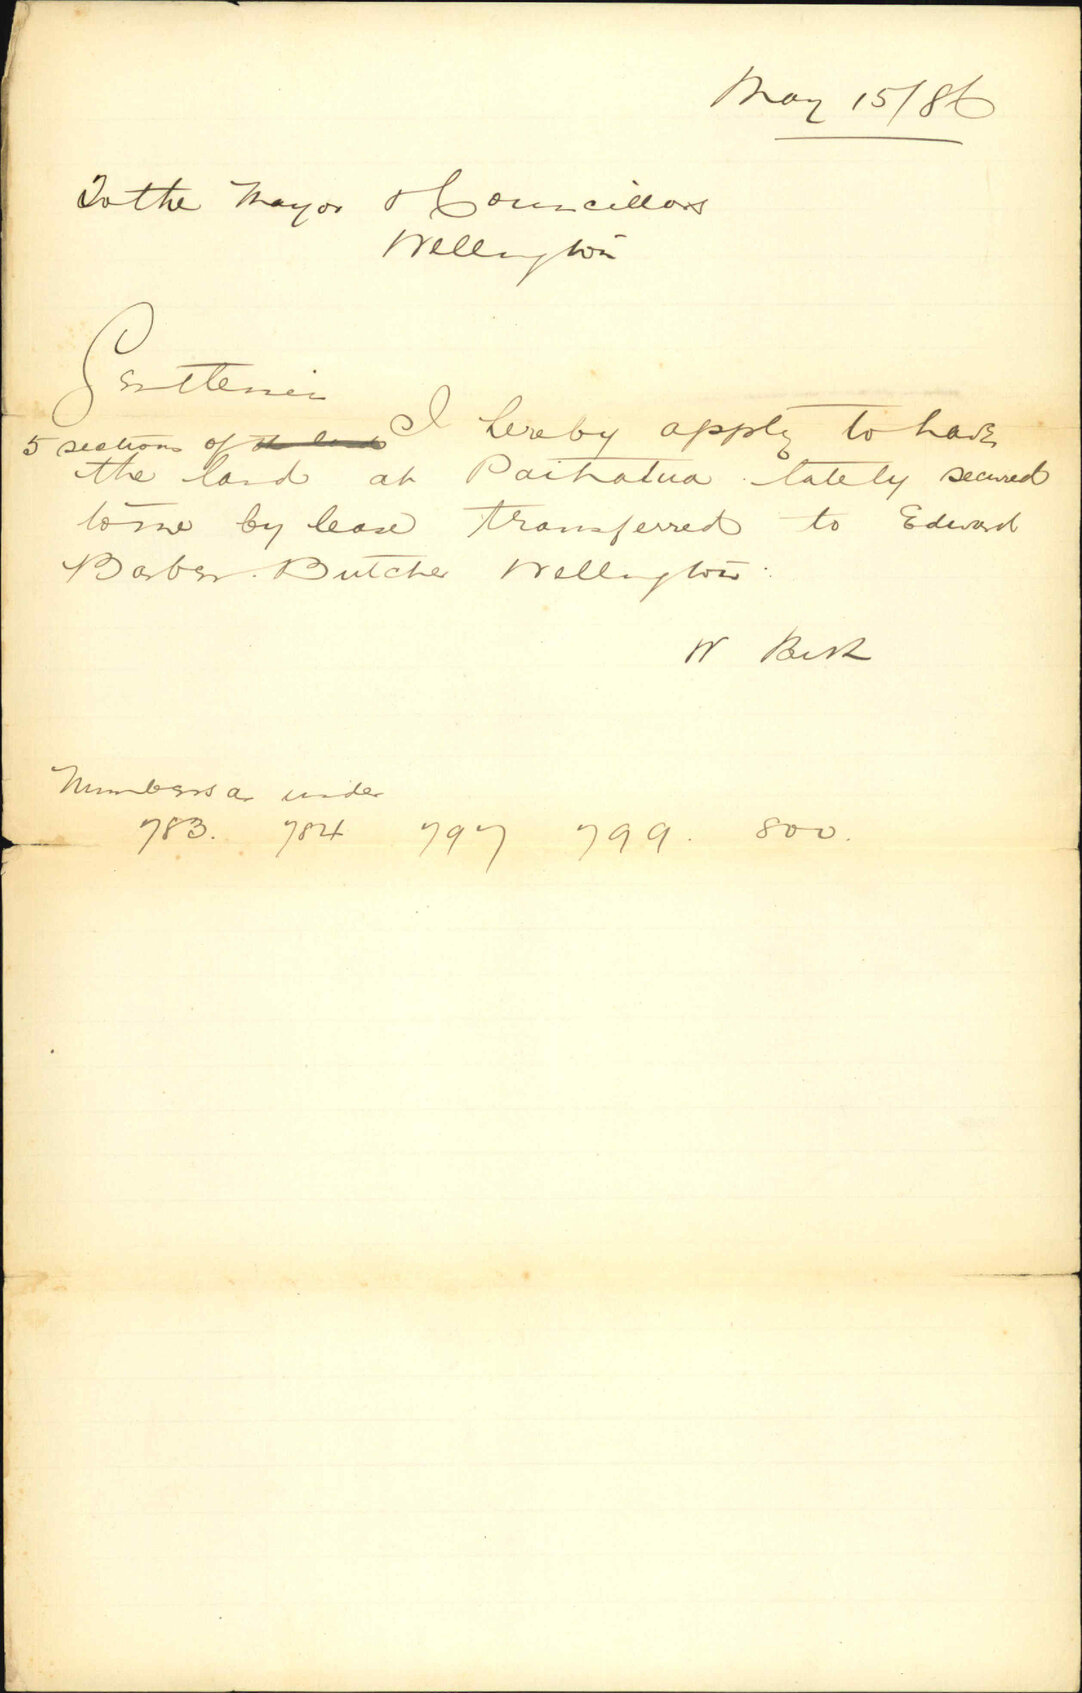 May 15/86
To the Mayor & Councillors
Wellington
Gentlemen
I hereby apply to have
5 sections of the land
the land at Paihatua lately secured
to me by lease transferred to Edward
Barber. Butcher Wellington.
W Best
Numbers as under
783. 784 797 799. 800.